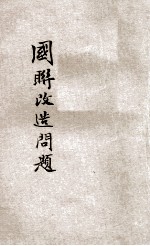 國聯改造問題